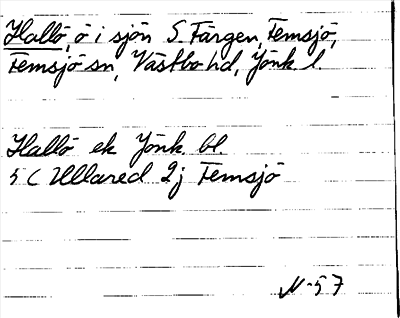 Hallö, ö i sjön S. Färgen, Femsjö,
Femsjö sn, Västbo hd, Jönk. l.
Hallö ek Jönk. bl.
5 C Ullared 2j Femsjö
N-57